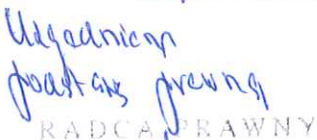 Uzgadniam
podstawę prawną
RADCA PRAWNY